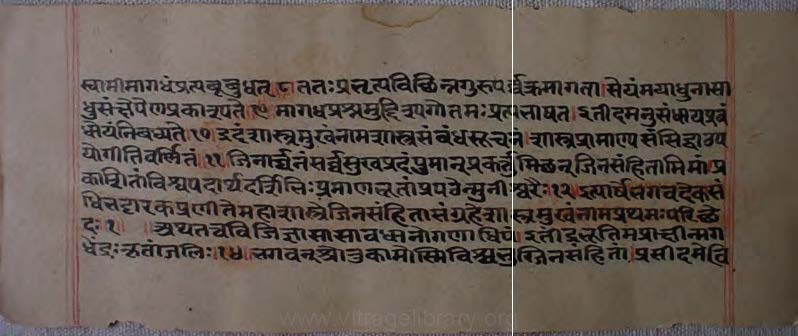 स्वामीमागधंप्रत्यबूबुधत् ८ ततःप्रभृत्यविछिन्नगुरुपर्वक्रमागता। सेयंमयाधुनासा
धुसंक्षेपेणप्रकाश्यते ९ मागधप्रश्नमुद्दिश्यगौतमःप्रत्यभाषत। इतीदमनुसंधायप्रबं
धोयंनिबध्यते १० इदंशास्त्रमुखंनामशास्त्रसंबंधसूचनं। शास्त्रप्रामाण्यसंसिद्धाउप
योगीतिवर्णितं ११ जिनार्चनंसर्वसुखप्रदंपुमान्प्रकर्तुमिछन्जिनसंहितामिमां। प्र
काशितांविश्वपदार्थदर्शिभिःप्रमाणभूतांप्रपठेन्मुनीश्वरैः १२ इत्यार्षेभगवदेकसं
धिभट्टारकप्रणीतेमहाशास्त्रेजिनसंहितासंग्रहेशास्त्रमुखंनामप्रथमःपरिछे
दः १ अथतत्वविजिज्ञासासावधानोगणाधिपं। इतो
धेंद्रःकृतांजलिः १४ भगवन्श्रोतुकामोस्मिविश्व जिनसंहितां। प्रसीदमे
www.vitragelibrary.org